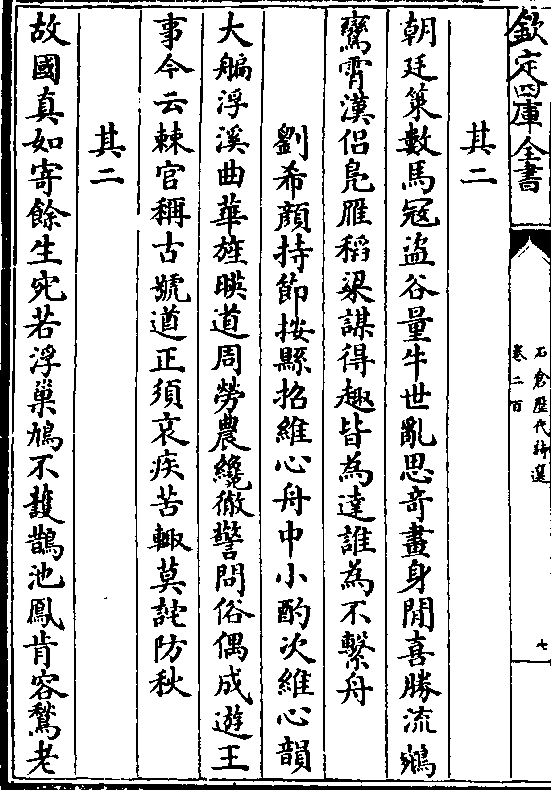 欽定四庫全書
石倉歴代詩選
卷二百
七
其二
朝廷策數馬冦盜谷量牛世亂思竒畫身閒喜勝流鵷
鸞霄漢侣鳬雁稻梁謀得趣皆為達誰為不繫舟
劉希顔持節按縣招維心舟中小酌次維心韻
大艑浮溪曲華旌暎道周勞農纔徹警問俗偶成遊王
事今云棘官稱古號遒正須哀疾苦輙莫詫防秋
其二
故國真如寄餘生宛若浮巢鳩不䕶鵲池鳳肯容鶖老